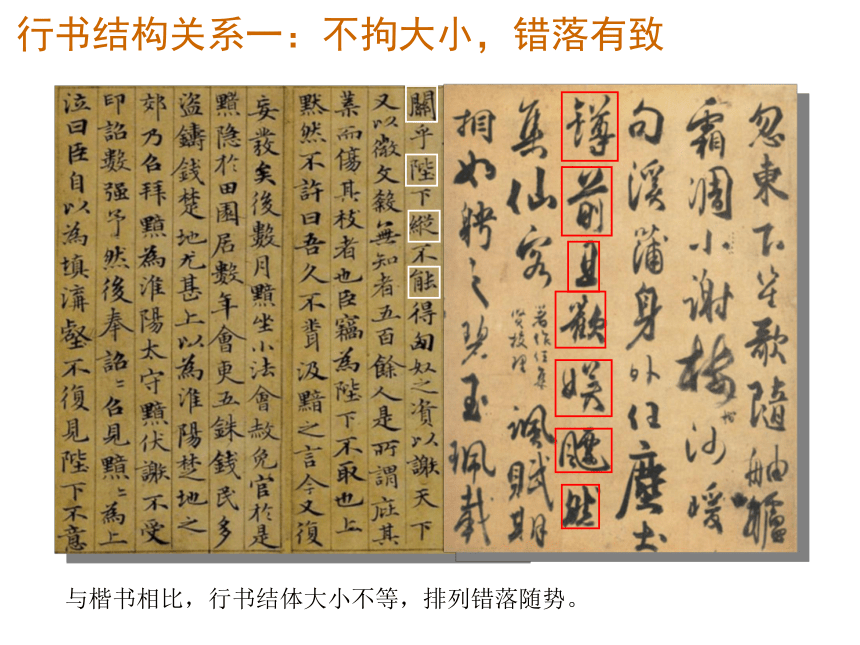 行书结构关系一：不拘大小，错落有致
關乎陛下縱不能得匈奴之資以謝天下
又以微文殺無知者五百餘人是所謂庇其
葉而傷其枝者也臣竊為陛下不取也上
默然不許曰吾久不聞汲黯之言今又復
妄發矣後數月黯坐小法會赦免官於是
黯隱於田園居數年會更五銖錢民多
盜鑄錢楚地尤甚上以為淮陽楚地之
郊乃召拜黯為淮陽太守黯伏謝不受
印詔數强予然後奉詔〻召見黯〻為上
泣曰臣自以為填溝壑不復見陛下不意
忽東下笙歌隨舳艫
霜凋小謝沙暖
句溪蒲身外任塵土
罇前且歡娛飄然
集仙客
著作任集
賢校理
諷賦期
相如聘之碧玉珮載
与楷书相比，行书结体大小不等，排列错落随势。